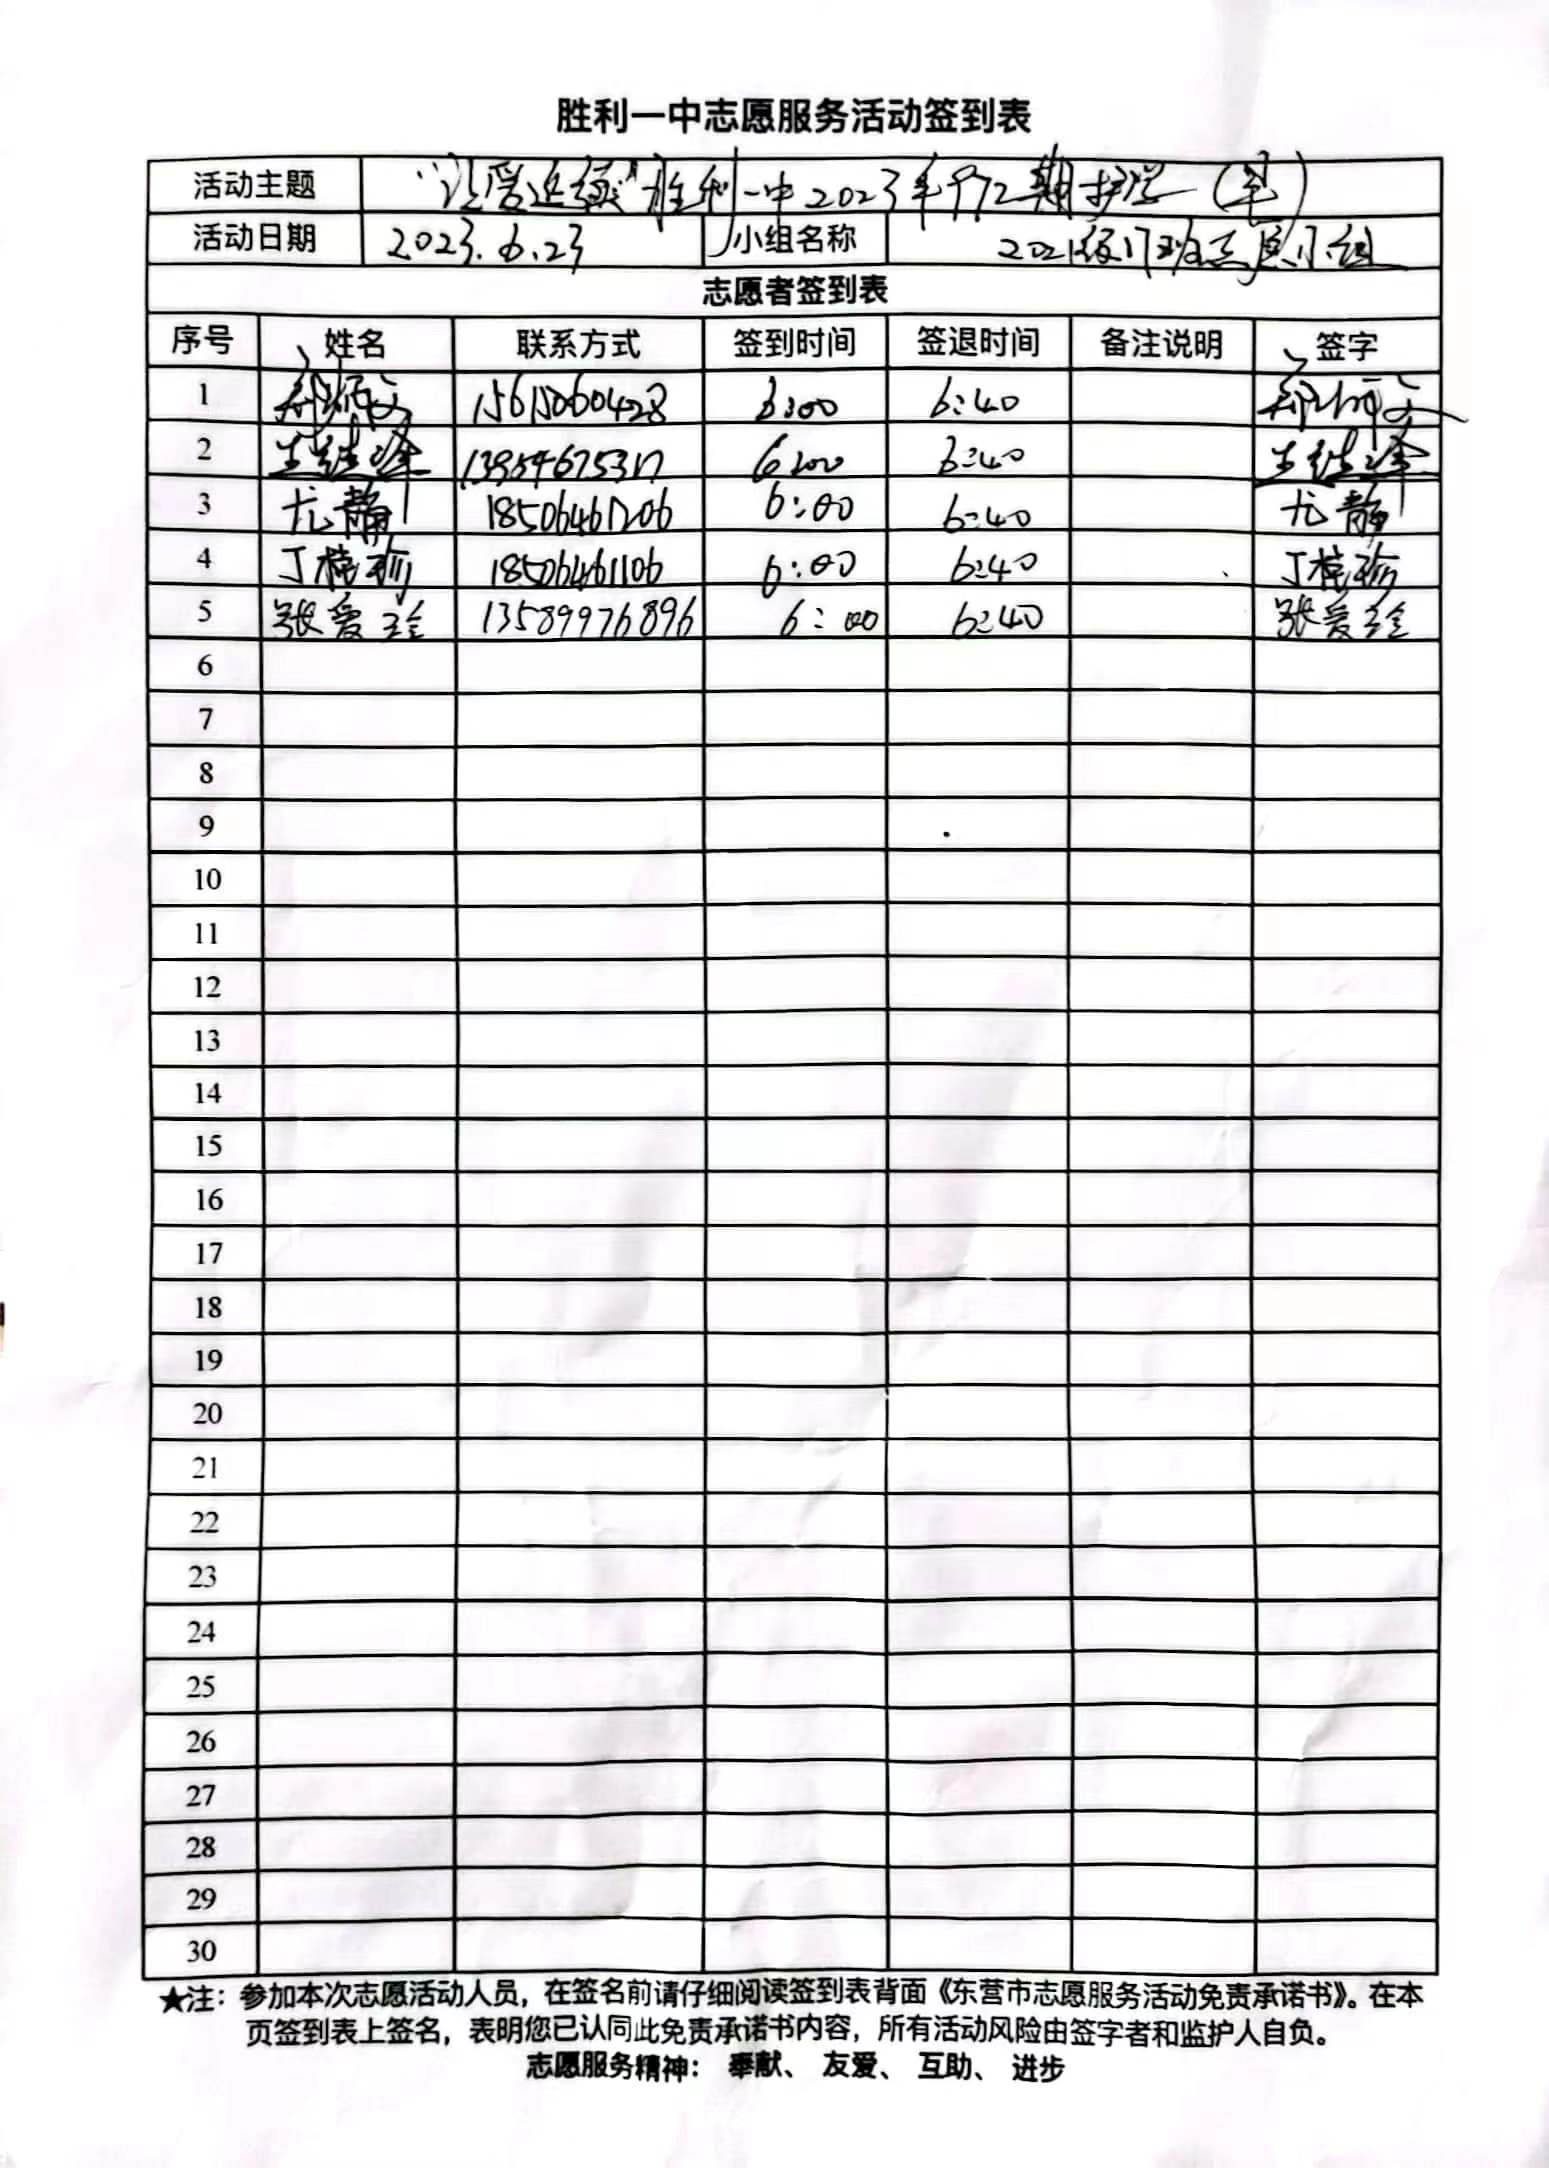 胜利一中志愿服务活动签到表
活动主题 “让爱延续”胜利一中2023年972期护学（早）
活动日期 2023.6.23 小组名称 2021级17班志愿小组
志愿者签到表
序号 姓名 联系方式 签到时间 签退时间 备注说明 签字
1 15615060428 6:00 6:40
2 6:00 6:40
3 尤静 18506461206 6:00 6:40 尤静
4 18506461106 6:00 6:40
5 张爱玲 13589976896 6:00 6:40 张爱玲
6
7
8
9
10
11
12
13
14
15
16
17
18
19
20
21
22
23
24
25
26
27
28
29
30
★注：参加本次志愿活动人员，在签名前请仔细阅读签到表背面《东营市志愿服务活动免责承诺书》。在本
页签到表上签名，表明您已认同此免责承诺书内容，所有活动风险由签字者和监护人自负。
志愿服务精神： 奉献、 友爱、 互助、 进步